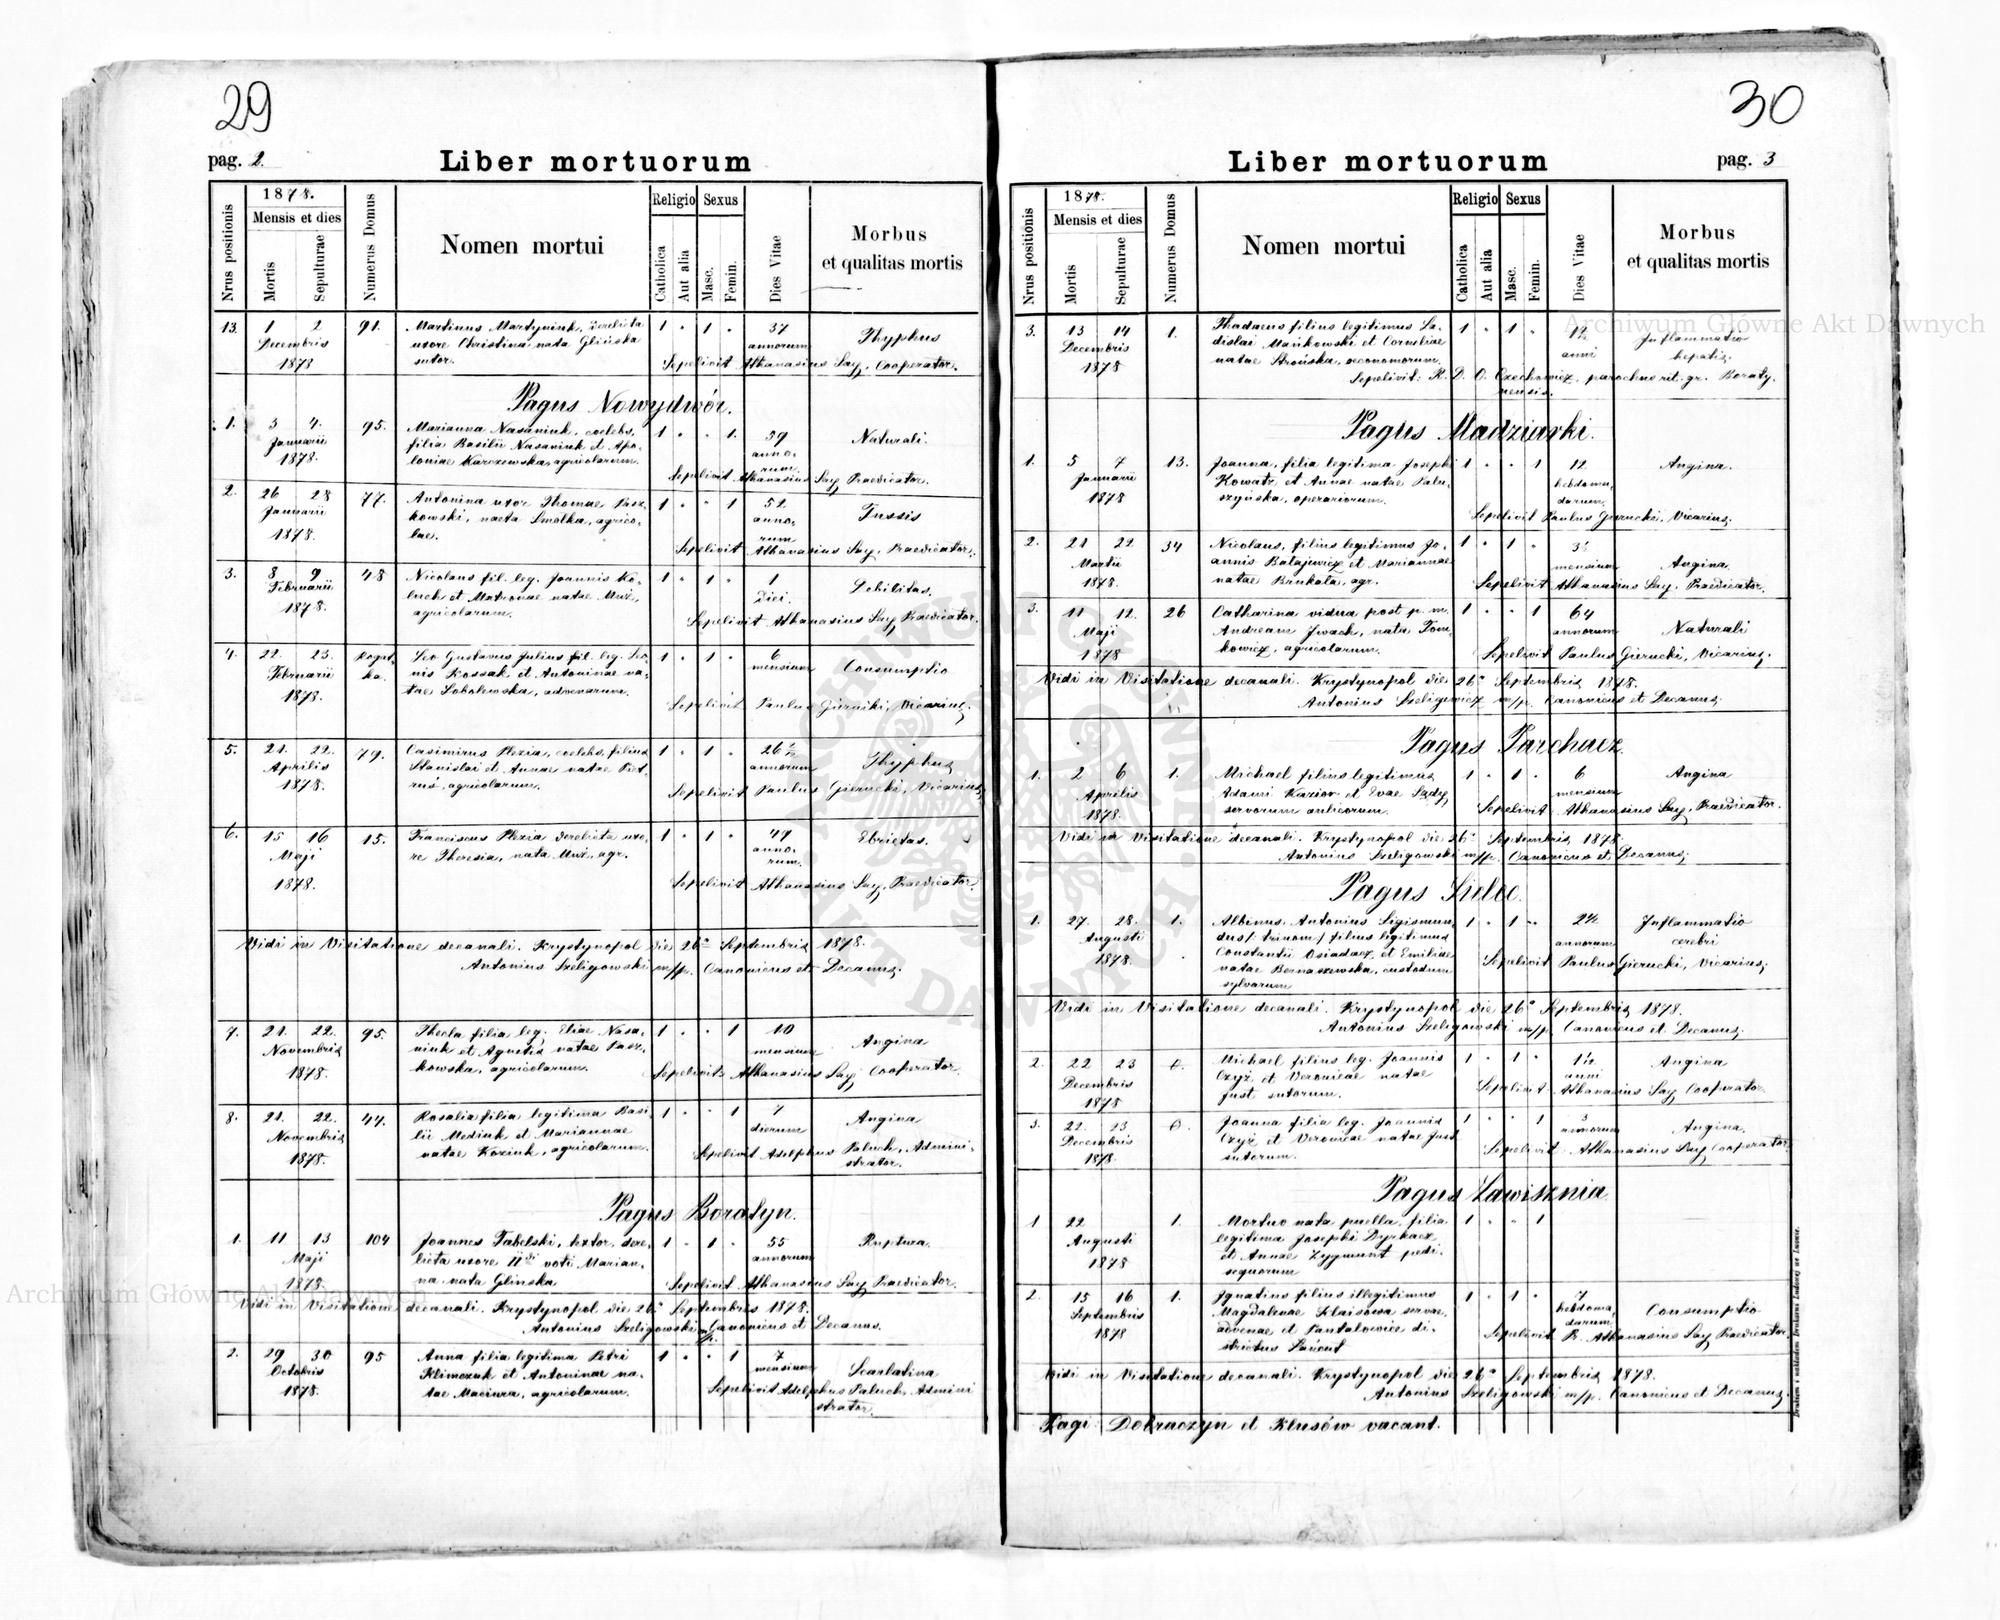 29
pag. 2.
Liber mortuorum
Nrus positionis
1878.
Mensis et dies
Mortis
Sepulturae
Numerus Domus
Nomen mortui
Religio
Catholica
Aut alia
Sexus
Masc.
Femin.
Dies Vitae
Morbus
et qualitas mortis
13. 1 2 91. Martinus Martyniuk, derelicta 1 " 1 " 37 Thyphus
Decembris uxore Christina nata Glińska annorum
1878 sutor. Sepelivit Athanasius Say, Cooperator.
Pagus Nowydwór.
1. 3 4. 95. Marianna Nasaniuk, coelebs, 1 " " 1. 59 Naturali.
Januarii filia Basilii Nasaniuk et Apo- anno-
1878. loniae Karczewska, agricolarum. rum
Sepelivit Athanasius Say Praedicator.
2. 26 28 77. Antonina uxor Thomae Pasz- 1 " " 1 52 Tussis
Januarii kowski, nata Smolka, agrico- anno-
1878. lae. rum
Sepelivit Athanasius Say, Praedicator.
3. 8 9 48 Nicolaus fil. leg. Joannis Ko- 1 " 1 " 1 Debilitas.
Februarii et Matronae natae
1878. agricolarum. diei.
Sepelivit Athanasius Say, Praedicator.
4. 22. 23. Rogat- Leo Gustavus Julius fil. leg. Leo- 1 " 1 " 6 Consumptio
Februarii ka. nis Kossak et Antoninae na- mensium
1878. tae Sobolewska, advenarum.
Sepelivit Paulus Vicarius.
5. 21. 22. 79. Casimirus Plezia, coelebs, filius 1 " 1 " 26 1/2 Thyphus
Aprilis Stanislai et Annae natae Piet- annorum
1878. rus, agricolarum. Sepelivit Paulus Gierucki, Vicarius.
6. 15 16 15. Franciscus Plezia derelicta uxo- 1 " 1 " 49 Ebrietas.
Maji re Theresia, nata agr. anno-
rum.
1878. Sepelivit Athanasius Say, Praedicator.
Vidi in Visitatione decanali. Krystynopol die 26a Septembris 1878.
Antonius Szeligowski m/p. Canonicus et Decanus.
7. 21. 22. 95. Thecla filia leg. Eliae Nasa- 1 " " 1 10 Angina
Novembris niuk et Agnetis natae Pasz- mensium
1878. kowska, agricolarum. Sepelivit Athanasius Say Cooperator.
8. 21. 22. 44. Rosalia filia legitima Basi- 1 " " 1 7 Angina
Novembris lii Mediuk et Mariannae dierum
1878. natae Koziuk, agricolarum. Sepelivit Adolphus Paluch, Admini-
strator.
Pagus Boratyn.
1. 11 13 104 Joannes Tabelski, textor, dere- 1 " 1 " 55 Ruptura.
Maji licta uxore IIdi voti Marian- annorum
1878 na nata Glinska Sepelivit Athanasius Say Praedicator.
Vidi in Visitatione decanali. Krystynopol die 26a Septembris 1878.
Antonius Szeligowski m/p. Canonicus et Decanus.
2. 29 30 95 Anna filia legitima Petri 1 " " 1 7 Scarlatina
Octobris Klimczuk et Antoninae na- mensium
1878. tae Maciura, agricolarum. Sepelivit Adolphus Paluch, Admini
strator.
30
Liber mortuorum
pag. 3
Nrus positionis
1878.
Mensis et dies
Mortis
Sepulturae
Numerus Domus
Nomen mortui
Religio
Catholica
Aut alia
Sexus
Masc.
Femin.
Dies Vitae
Morbus
et qualitas mortis
3. 13 14 1. Thadaeus filius legitimus La- 1 " 1 " 1 1/2 Inflammatio
Decembris dislai Mańkowski et Corneliae anni hepatis.
1878 natae Strońska, oeconomorum.
Sepelivit: R. D. O. Czechowicz, parochus rit. gr. Boraty-
nensis.
Pagus Madziarki.
1. 5 7 13. Joanna, filia legitima Josephi 1 " " 1 12 Angina.
Januarii Kowatz et Annae natae Palu- hebdoma-
1878 szyńska, operariorum. darum
Sepelivit Paulus Gierucki, Vicarius.
2. 21 22 34 Nicolaus, filius legitimus Jo- 1 " 1 " 3 1/2 Angina.
Martii annis Batajewicz et Mariannae mensium
1878. natae Brukala, agr. Sepelivit Athanasius Say, Praedicator.
3. 11 12. 26 Catharina vidua post p. m. 1 " " 1 64 Naturali
Maji Andream Iwach, nata Tom- annorum
1878 kowicz, agricolarum. Sepelivit Paulus Gierucki, Vicarius.
Vidi in Visitatione decanali. Krystynopol die 26a Septembris 1878.
Antonius Szeligowski m/p. Canonicus et Decanus.
Pagus Parchacz.
1. 2 6 1. Michael filius legitimus 1 " 1 " 6 Angina
Aprilis Adami Kazior et Evae mensium
1878. servorum aulicorum. Sepelivit Athanasius Say, Praedicator.
Vidi in Visitatione decanali. Krystynopol die 26a Septembris 1878.
Antonius Szeligowski m/p. Canonicus et Decanus.
Pagus Sielec.
1. 27. 28. 1. Albinus, Antonius Sigismun- 1 " 1 " 2 1/2 Inflammatio
Augusti dus /: trinom / filius legitimus annorum cerebri
1878. Constantii Osiadacz et Emiliae Sepelivit Paulus Gierucki, Vicarius.
natae Bernaszewska, custodum
sylvarum
Vidi in Visitatione decanali. Krystynopol die 26a Septembris 1878.
Antonius Szeligowski m/p. Canonicus et Decanus.
2. 22 23 0. Michael filius leg. Joannis 1 " 1 " 1 1/2 Angina
Decembris Czyż et Veronicae natae anni
1878 Just sutorum. Sepelivit Athanasius Say Cooperator
3. 22. 23 0. Joanna filia leg. Joannis 1 " " 1 3 Angina.
Decembris Czyż et Veronicae natae Just annorum
1878. sutorum. Sepelivit Athanasius Say Cooperator.
Pagus Zawisznia
1 22 1. Mortuo nata puella, filia 1 " " 1
Augusti legitima Josephi Dyrkacz
1878 et Annae Zygmunt pedi-
sequorum
2. 15 16 1. Ignatius filius illegitimus 1 " 1 " 7 Consumptio
Septembris Magdalenae Klaisowa servae, hebdoma-
darum
1878 advenae et Pantalowice di- Sepelivit P. Athanasius Say Praedicator.
strictus
Vidi in Visitatione decanali. Krystynopol die 26a Septembris 1878.
Antonius Szeligowski m/p. Canonicus et Decanus.
Pagi: Dobraczyn et Klusów vacant.
Drukiem i nakładem Drukarni Ludowej we Lwowie.
Archiwum Główne Akt Dawnych
Archiwum Główne Akt Dawnych
ARCHIWUM GŁÓWNE AKT DAWNYCH